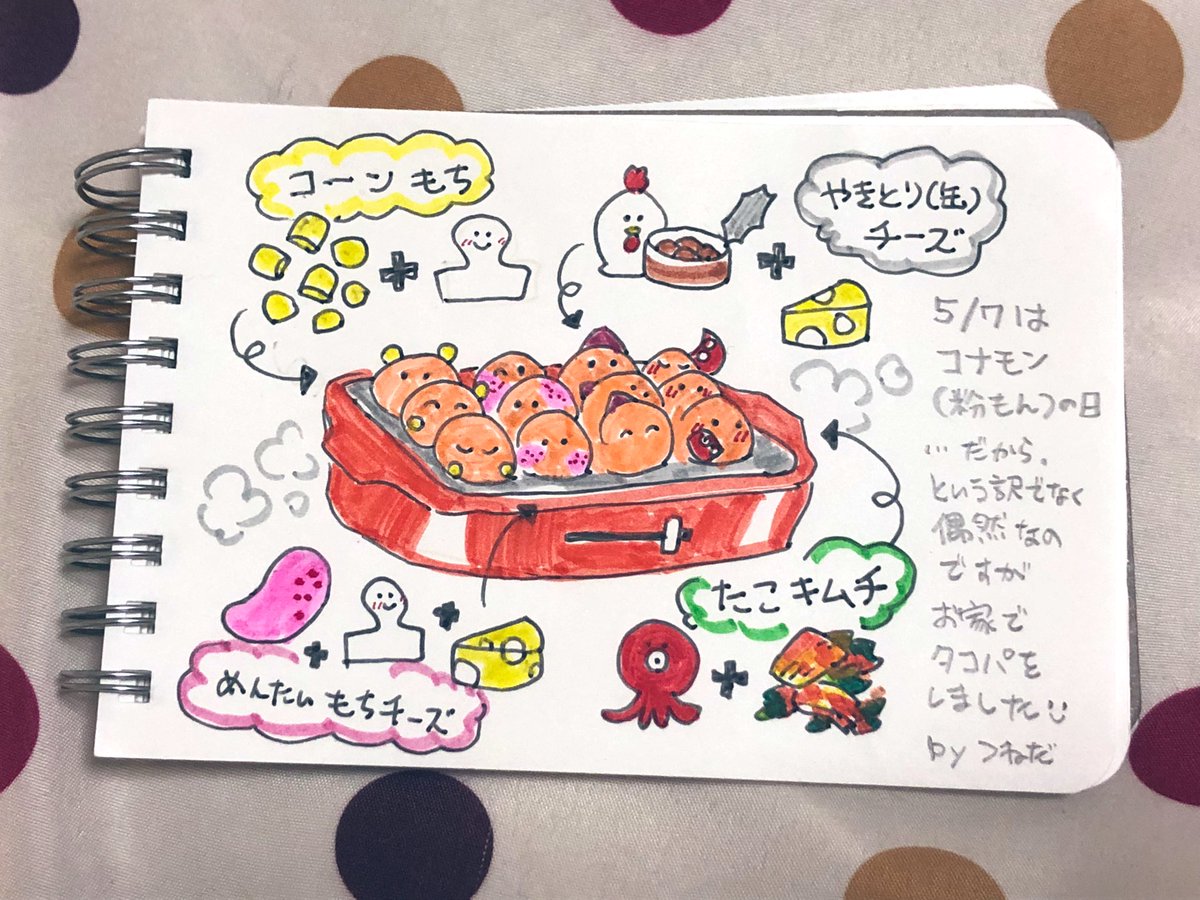 コーン もち
やきとり(缶)
チーズ
5/7は
コナモン
(粉もん)の日
…だから、
という訳でなく
偶然なの
ですが
お家で
タコパを
しました
by つねだ
めんたい もちチーズ
たこ キムチ